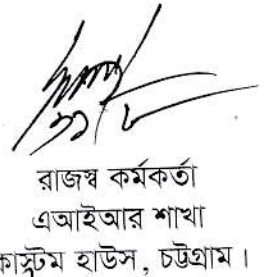 রাজস্ব কর্মকর্তা
এআইআর শাখা
কাস্টম হাউস, চট্টগ্রাম।